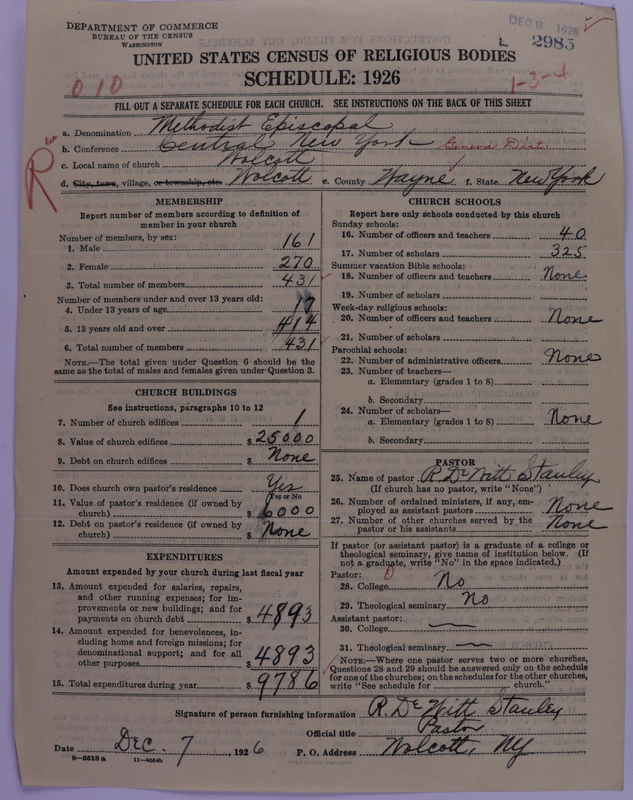 DEPARTMENT OF COMMERCE
BUREAU OF THE CENSUS
WASHINGTON
DEC 8 1926
2985
UNITED STATES CENSUS OF RELIGIOUS BODIES
SCHEDULE: 1926
0 1 0
1-3-d
FILL OUT A SEPARATE SCHEDULE FOR EACH CHURCH. SEE INSTRUCTIONS ON THE BACK OF THIS SHEET
R
a. Denomination Methodist Episcopal
b. Conference Central New York Geneva Dist.
c. Local name of church Wolcott
d. City, town, village, or township, etc. Wolcott e. County Wayne f. State New York
MEMBERSHIP
Report number of members according to definition of
member in your church
Number of members, by sex:
1. Male 161
2. Female 270
3. Total number of members 431
Number of members under and over 13 years old:
4. Under 13 years of age 17
5. 13 years old and over 414
6. Total number of members 431
NOTE.—The total given under Question 6 should be
same as the total of males and females given under Question 3.
CHURCH BUILDINGS
See instructions, paragraphs 10 to 12
7. Number of church edifices 1
8. Value of church edifices $ 25000
9. Debt on church edifices $ None
10. Does church own pastor's residence Yes
Yes or No
11. Value of pastor's residence (if owned by
church) $ 6000
12. Debt on pastor's residence (if owned by
church) $ None
EXPENDITURES
Amount expended by your church during last fiscal year
13. Amount expended for salaries, repairs,
and other running expenses; for im-
provements or new buildings; and for
payments on church debt $ 4893
14. Amount expended for benevolences,
including home and foreign missions; for
denominational support; and for all
other purposes $ 4893
15. Total expenditures during year $ 9786
CHURCH SCHOOLS
Report here only schools conducted by this church
Sunday schools:
16. Number of officers and teachers 40
17. Number of scholars 325
Summer vacation Bible schools:
18. Number of officers and teachers None
19. Number of scholars
Week-day religious schools:
20. Number of officers and teachers None
21. Number of scholars
Parochial schools:
22. Number of administrative officers None
23. Number of teachers—
a. Elementary (grades 1 to 8)
b. Secondary
24. Number of scholars—
a. Elementary (grades 1 to 8) None
b. Secondary
PASTOR
25. Name of pastor R. DeWitt Stanley
(If church has no pastor, write "None")
26. Number of ordained ministers, if any, em-
ployed as assistant pastors None
27. Number of other churches served by the
pastor or his assistants None
If pastor (or assistant pastor) is a graduate of a college or
theological seminary, give name of institution below. (If
not a graduate, write "No" in the space indicated.)
Pastor: 0
28. College No
29. Theological seminary No
Assistant pastor:
30. College —
31. Theological seminary —
NOTE.—Where one pastor serves two or more churches,
Questions 28 and 29 should be answered only on the schedule
for one of the churches; on the schedules for the other churches,
write "See schedule for church."
Signature of person furnishing information R. DeWitt Stanley
Official title Pastor
Date Dec. 7, 1926 P. O. Address Wolcott, NY
8-5518 a 11-9054b